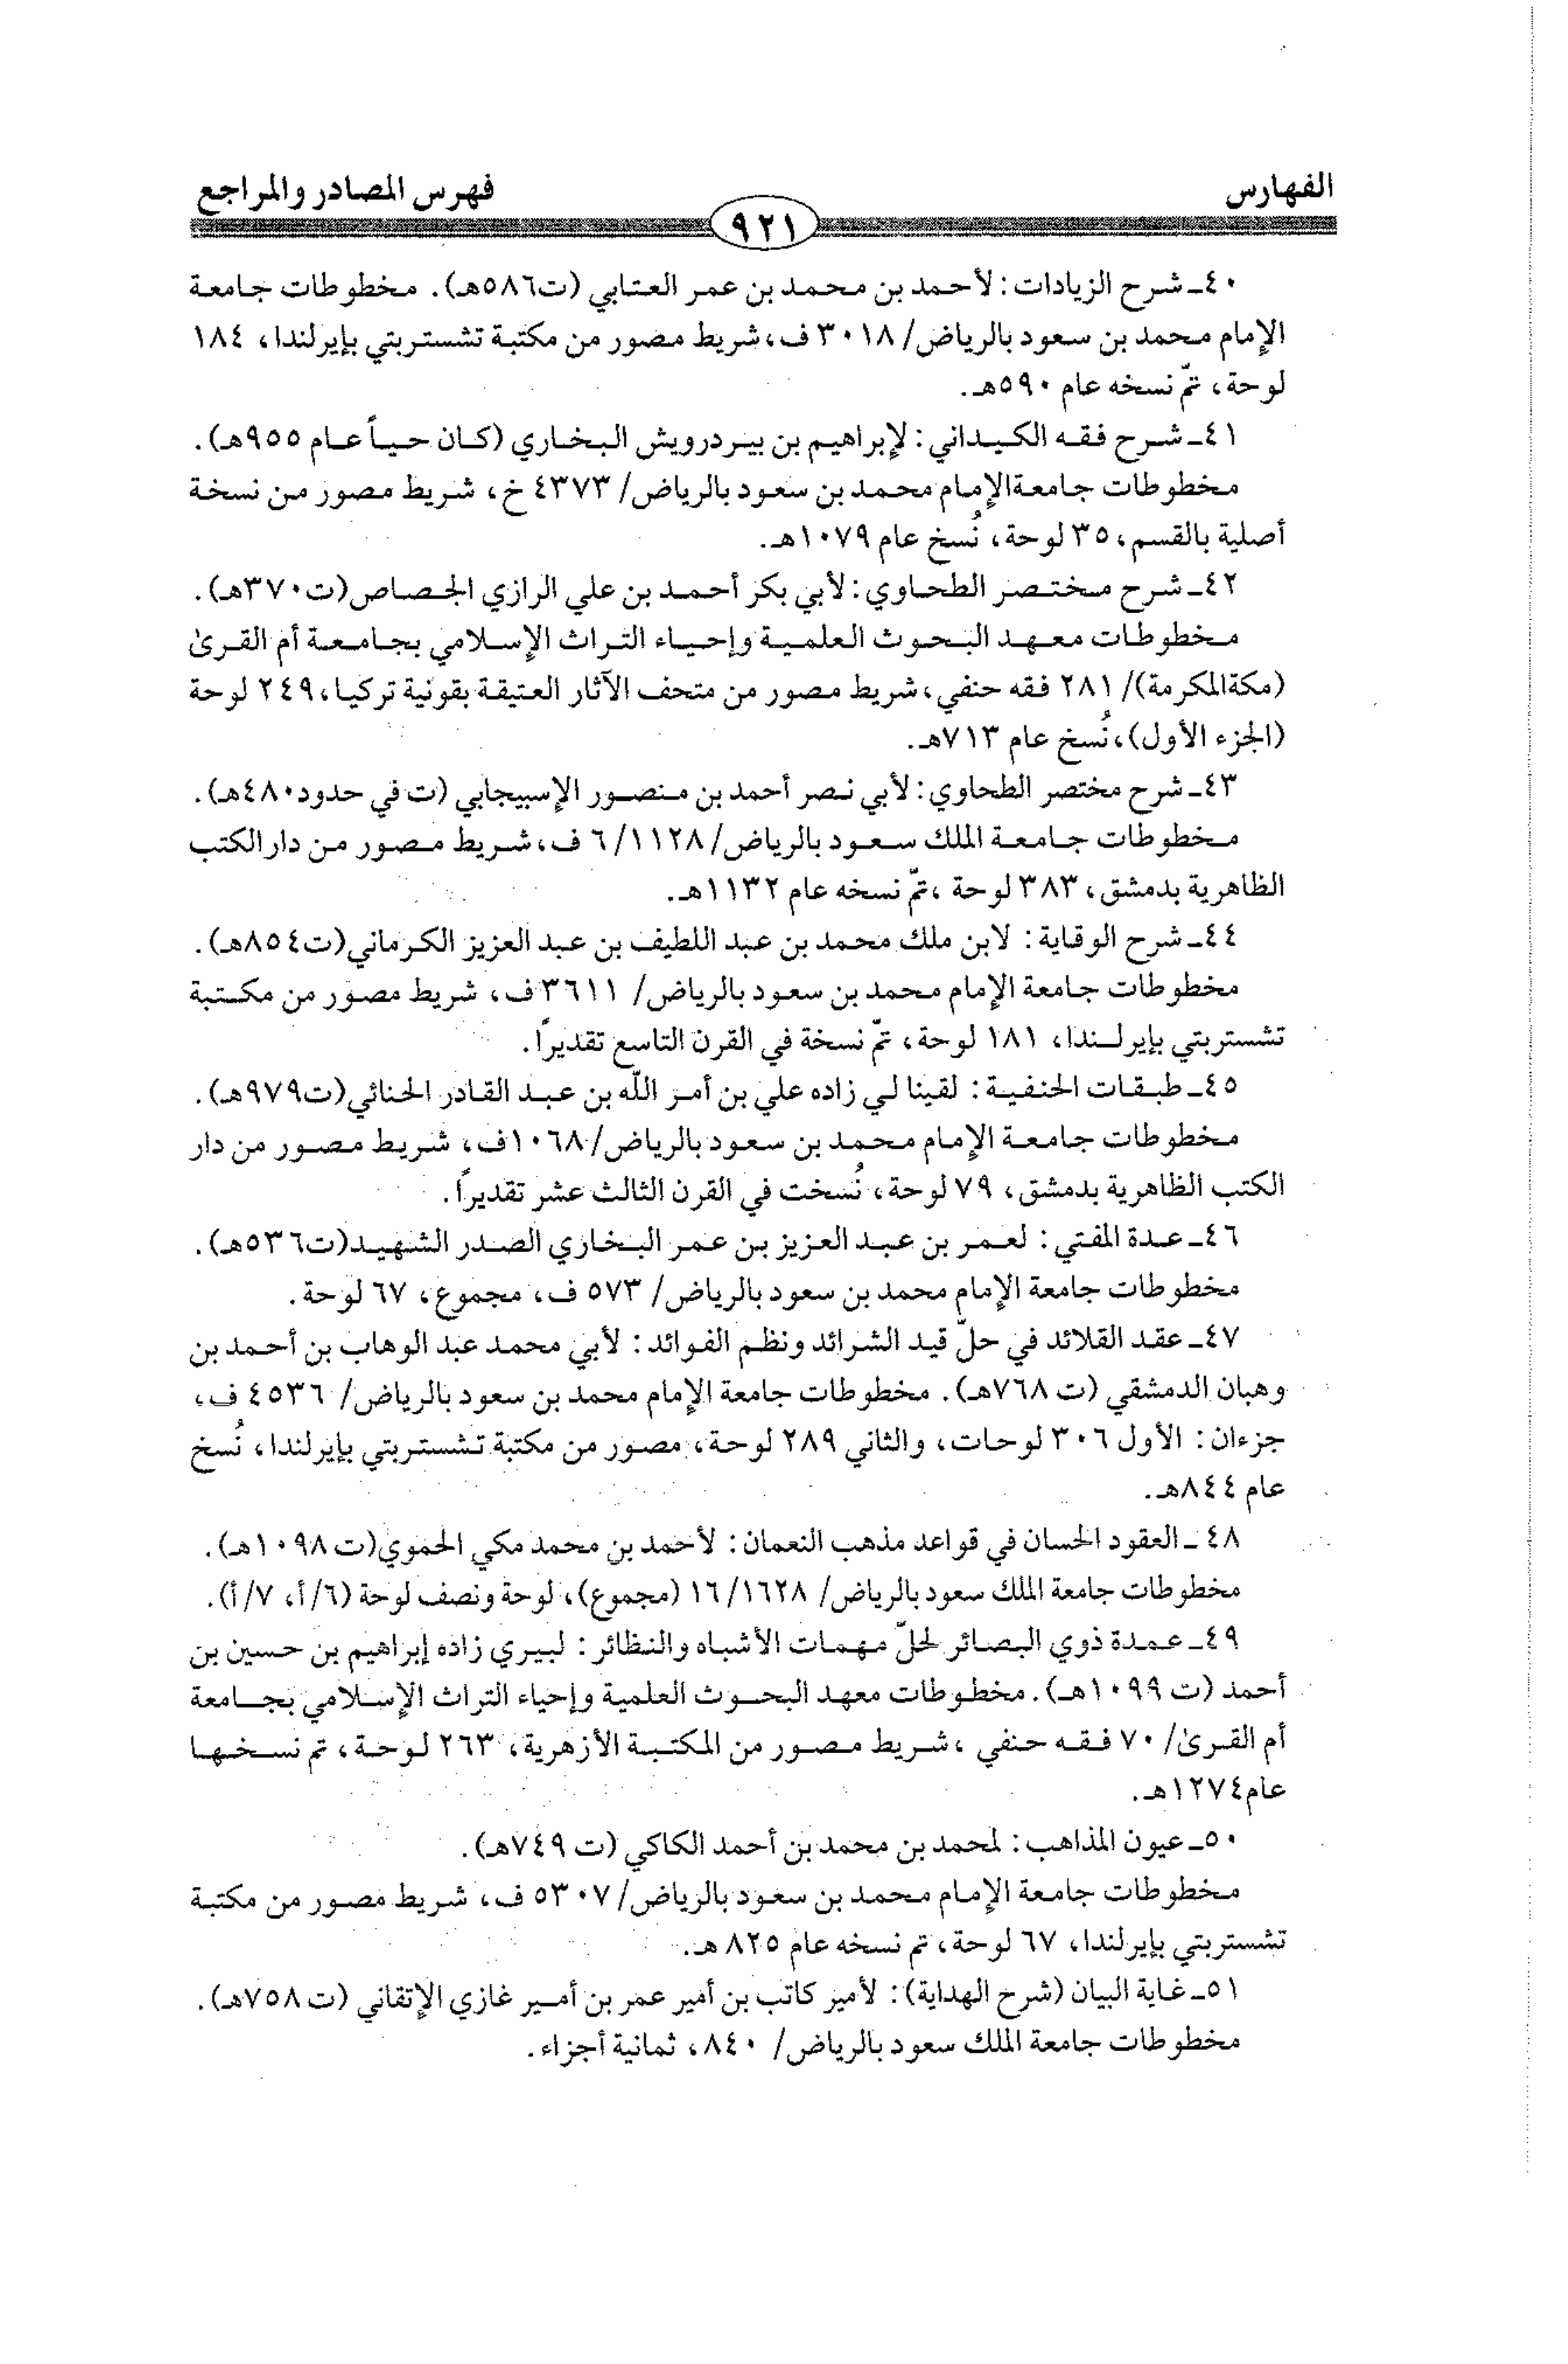 الفهارس
فهرس المصادر والمراجع
٩٢١
٤٠ـ شرح الزيادات: لأحمد بن محمد بن عمر العتابي (ت٥٨٦هـ). مخطوطات جامعة
الإمام محمد بن سعود بالرياض/ ٣٠١٨ ف، شريط مصور من مكتبة تشستربتي بإيرلندا، ١٨٤
لوحة، تمّ نسخه عام ٥٩٠هـ.
٤١ـ شرح فقه الكيداني: لإبراهيم بن بيردرويش البخاري (كان حياً عام ٩٥٥هـ).
مخطوطات جامعةالإمام محمد بن سعود بالرياض/ ٤٣٧٣ خ، شريط مصور من نسخة
أصلية بالقسم، ٣٥ لوحة، نُسخ عام ١٠٧٩هـ.
٤٢ـ شرح مختصر الطحاوي: لأبي بكر أحمد بن علي الرازي الجصاص(ت٣٧٠هـ).
مخطوطات معهد البحوث العلمية وإحياء التراث الإسلامي بجامعة أم القرىٰ
(مكةالمكرمة)/ ٢٨١ فقه حنفي، شريط مصور من متحف الآثار العتيقة بقونية تركيا، ٢٤٩ لوحة
(الجزء الأول)، نُسخ عام ٧١٣هـ.
٤٣ـ شرح مختصر الطحاوي: لأبي نصر أحمد بن منصور الإسبيجابي (ت في حدود٤٨٠هـ).
مخطوطات جامعة الملك سعود بالرياض/ ٦/١١٢٨ ف، شريط مصور من دارالكتب
الظاهرية بدمشق، ٣٨٣ لوحة ،تمّ نسخه عام ١١٣٢هـ.
٤٤ـ شرح الوقاية: لابن ملك محمد بن عبد اللطيف بن عبد العزيز الكرماني(ت٨٥٤هـ).
مخطوطات جامعة الإمام محمد بن سعود بالرياض/ ٣٦١١ ف، شريط مصور من مكتبة
تشستربتي بإيرلندا، ١٨١ لوحة، تمّ نسخة في القرن التاسع تقديراً.
٤٥ـ طبقات الحنفية: لقينا لي زاده علي بن أمر اللّه بن عبد القادر الحنائي(ت٩٧٩هـ).
مخطوطات جامعة الإمام محمد بن سعود بالرياض/ ١٠٦٨ف، شريط مصور من دار
الكتب الظاهرية بدمشق، ٧٩ لوحة، نُسخت في القرن الثالث عشر تقديراً.
٤٦ـ عدة المفتي: لعمر بن عبد العزيز بن عمر البخاري الصدر الشهيد(ت٥٣٦هـ).
مخطوطات جامعة الإمام محمد بن سعود بالرياض/ ٥٧٣ ف، مجموع، ٦٧ لوحة.
٤٧ـ عقد القلائد في حلّ قيد الشرائد ونظم الفوائد: لأبي محمد عبد الوهاب بن أحمد بن
وهبان الدمشقي (ت ٧٦٨هـ). مخطوطات جامعة الإمام محمد بن سعود بالرياض/ ٤٥٣٦ ف،
جزءان: الأول ٣٠٦ لوحات، والثاني ٢٨٩ لوحة، مصور من مكتبة تشستربتي بإيرلندا، نُسخ
عام ٨٤٤هـ.
٤٨ ـ العقود الحسان في قواعد مذهب النعمان: لأحمد بن محمد مكي الحموي(ت ١٠٩٨هـ).
مخطوطات جامعة الملك سعود بالرياض/ ١٦/١٦٢٨ (مجموع)، لوحة ونصف لوحة (٦/أ، ٧/أ).
٤٩ـ عمدة ذوي البصائر لحلّ مهمات الأشباه والنظائر: لبيري زاده إبراهيم بن حسين بن
أحمد (ت ١٠٩٩هـ). مخطوطات معهد البحوث العلمية وإحياء التراث الإسلامي بجامعة
أم القرىٰ/ ٧٠ فقه حنفي ،شريط مصور من المكتبة الأزهرية، ٢٦٣ لوحة، تم نسخها
عام١٢٧٤هـ.
٥٠ـ عيون المذاهب: لمحمد بن محمد بن أحمد الكاكي (ت ٧٤٩هـ).
مخطوطات جامعة الإمام محمد بن سعود بالرياض/ ٥٣٠٧ ف، شريط مصور من مكتبة
تشستربتي بإيرلندا، ٦٧ لوحة، تم نسخه عام ٨٢٥ هـ.
٥١ـ غاية البيان (شرح الهداية): لأمير كاتب بن أمير عمر بن أمير غازي الإتقاني (ت ٧٥٨هـ).
مخطوطات جامعة الملك سعود بالرياض/ ٨٤٠، ثمانية أجزاء.